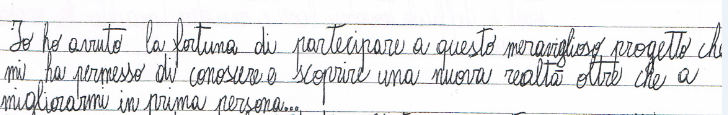 Io ho avuto la fortuna di partecipare a questo meraviglioso progetto che
mi ha permesso di conoscere e scoprire una nuova realtà oltre che a
migliorarmi in prima persona...